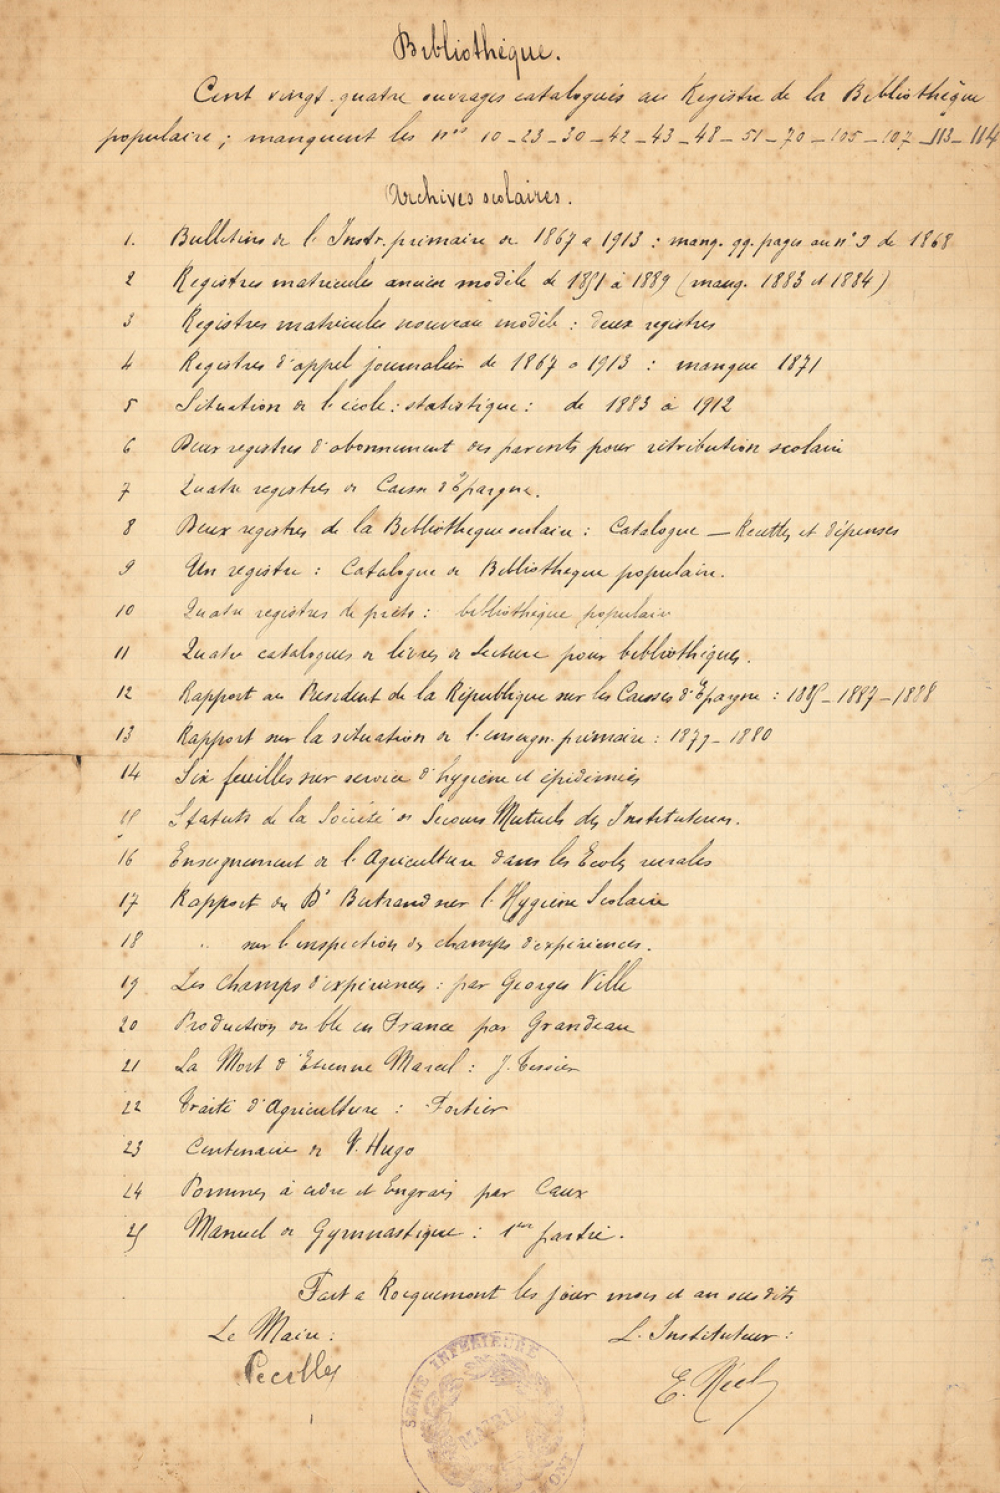 Bibliothèque.
Cent vingt-quatre ouvrages catalogués au Registre de la Bibliothèque
populaire ; manquent les nos 10 - 23 - 30 - 42 - 43 - 48 - 51 - 70 - 105 - 107 - 113 - 114
Archives scolaires.
1. Bulletins de l'Instr. primaire de 1867 a 1913 : manq. qq. pages au n° 9 de 1868
2 Registres matricules ancien modèle de 1851 à 1889 (manq. 1883 et 1884)
3 Registres matricules nouveau modèle : deux registres
4 Registres d'appel journalier de 1867 a 1913 : manque 1871
5 Situation de l'école : statistique : de 1883 à 1912
6 Deux registres d'abonnement des parents pour rétribution scolaire
7 Quatre registres de Caisse d'Epargne.
8 Deux registres de la Bibliothèque scolaire : Catalogue — Recettes et dépenses
9 Un registre : Catalogue de Bibliothèque populaire.
10 Quatre registres de prêts : bibliothèque populaire
11 Quatre catalogues de livres de lecture pour bibliothèques.
12 Rapport au Président de la République sur les Caisses d'Epargne : 1885 - 1887 - 1888
13 Rapport sur la situation de l'enseign. primaire : 1879 - 1880
14 Six feuilles sur service d'hygiène et épidémies
15 Statuts de la Société de Secours Mutuels des Instituteurs.
16 Enseignement de l'Agriculture dans les Ecoles rurales
17 Rapport du Dr Bertrand sur l'Hygiène Scolaire
18 " sur l'inspection des champs d'expériences.
19 Les champs d'expériences : par Georges Ville
20 Production du blé en France par Grandeau
21 La Mort d'Etienne Marcel : J. Tessier
22 Traité d'Agriculture : Fortier
23 Centenaire de V. Hugo
24 Pommes à cidre et Engrais par Caux
25 Manuel de Gymnastique : 1ère partie.
Fait a Rocquemont les jour mois et an susdits
Le Maire :
L'Instituteur :
E.
SEINE INFERIEURE
MAIRIE